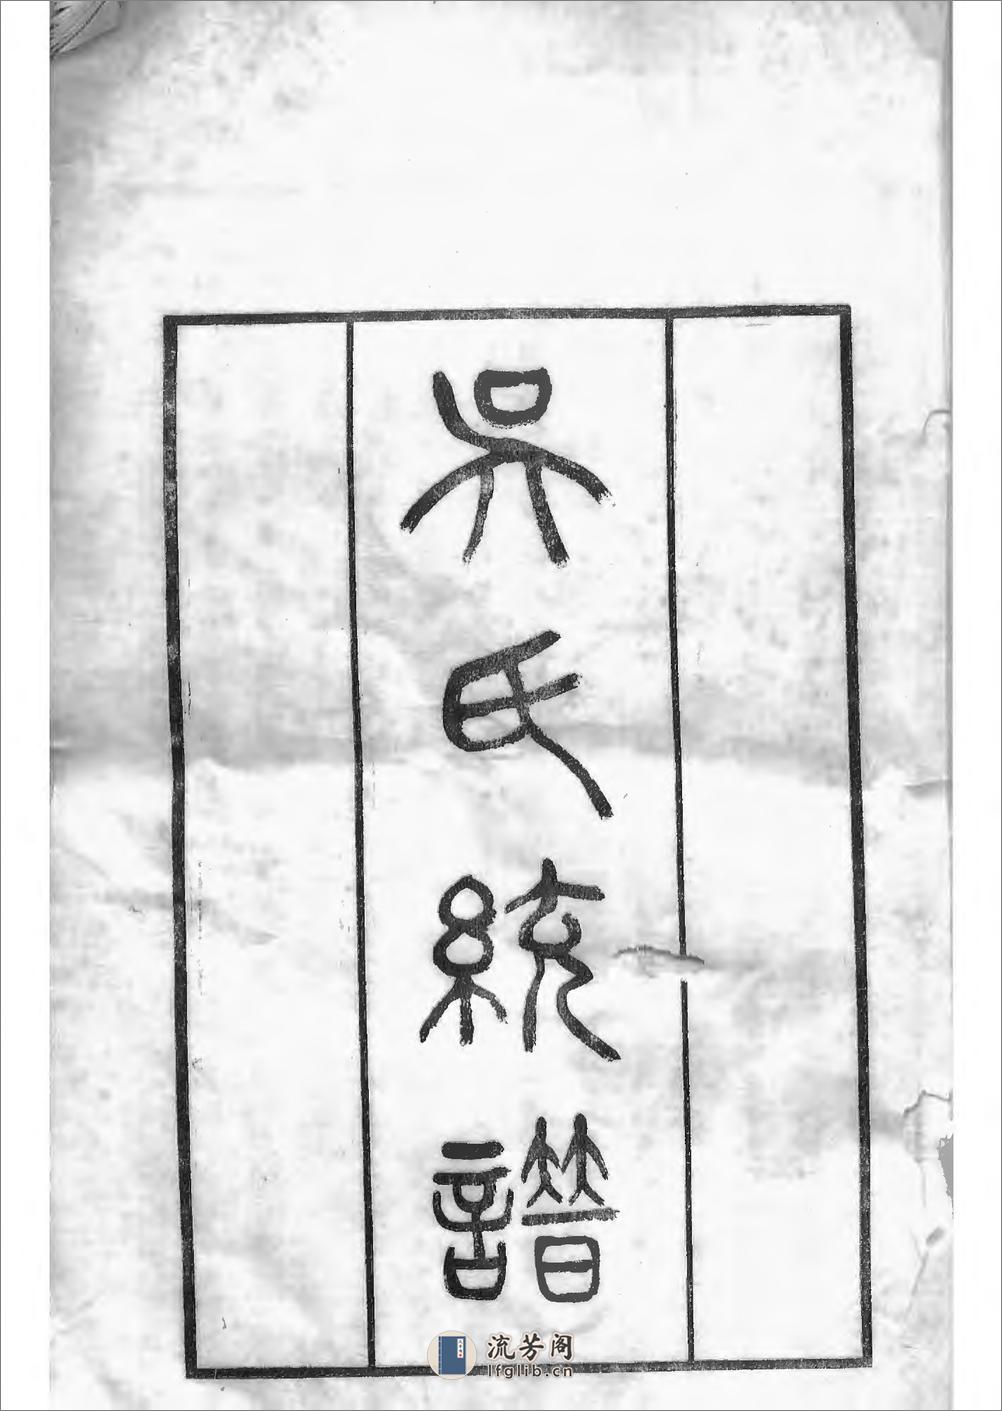 吳氏統譜
流芳阁
lfglib.cn